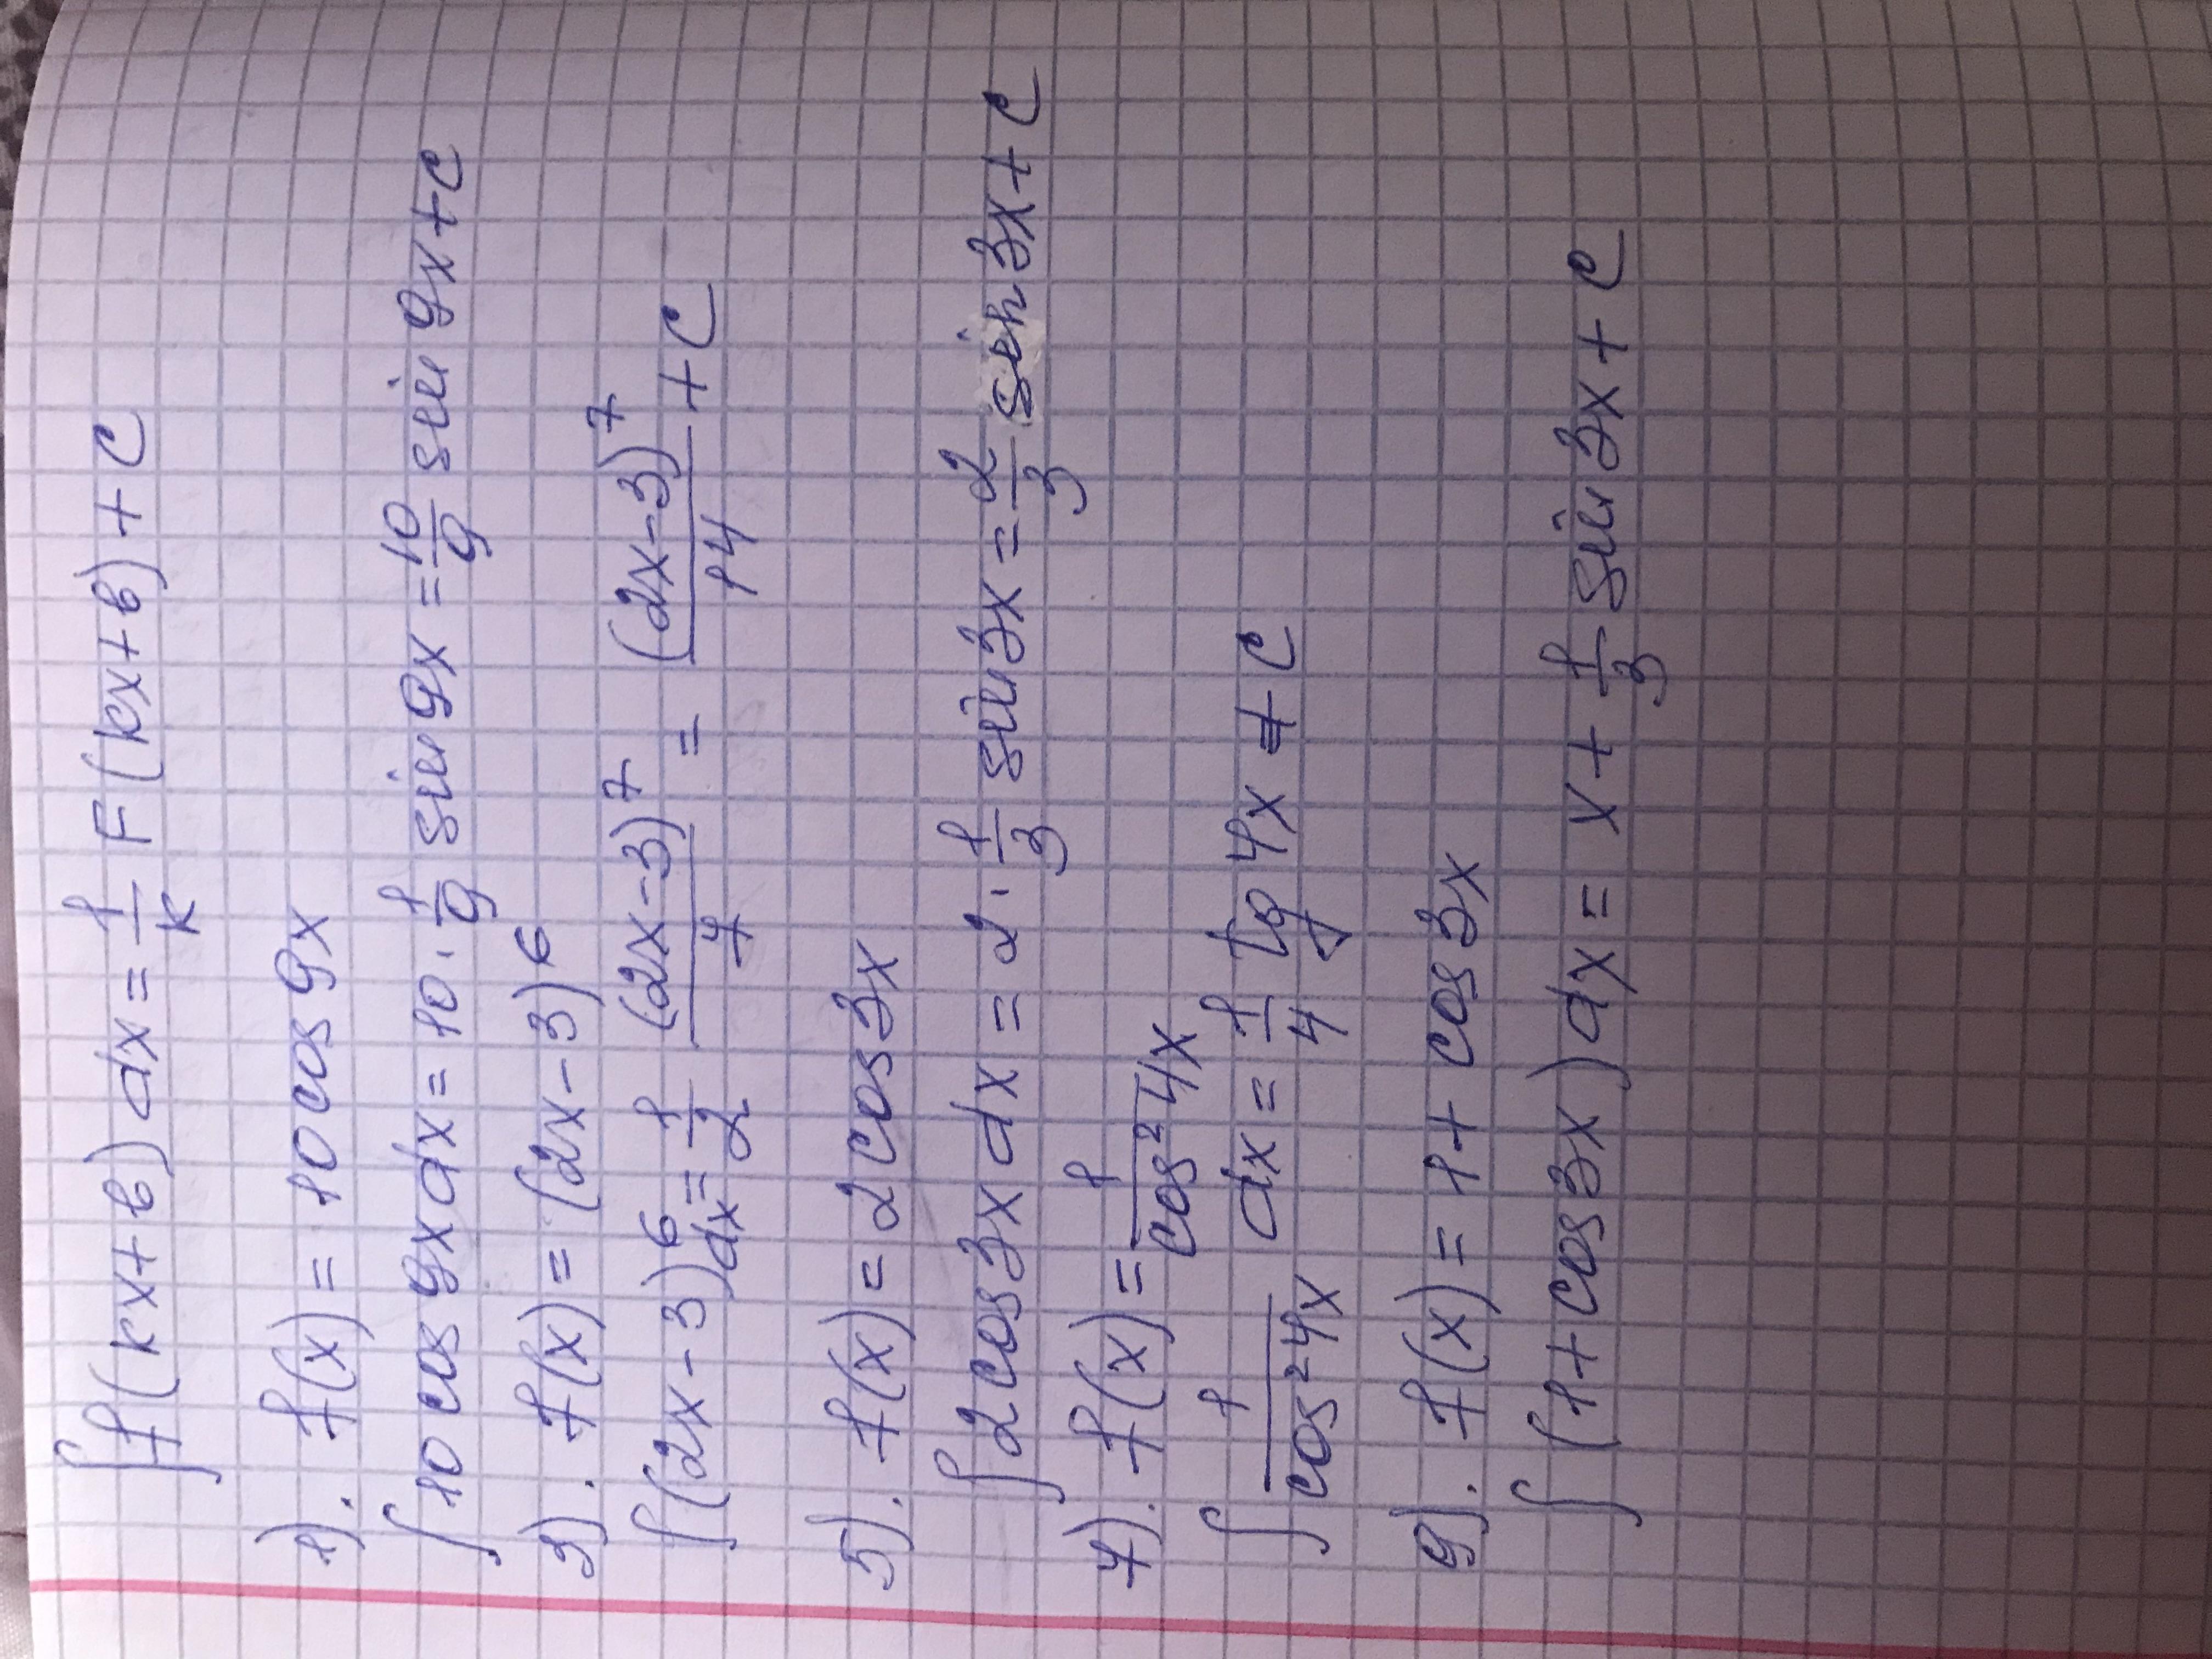 ∫f(kx+b)dx = 1/k F(kx+b)+C
1). f(x) = 10 cos 9x
∫10 cos 9x dx = 10 · 1/9 sin 9x = 10/9 sin 9x + C
3). f(x) = (2x-3)^6
∫(2x-3)^6 dx = 1/2 (2x-3)^7/7 = (2x-3)^7/14 + C
5). f(x) = 2 cos 3x
∫2 cos 3x dx = 2 · 1/3 sin 3x = 2/3 sin 3x + C
7). f(x) = 1/cos² 4x
∫ 1/cos² 4x dx = 1/4 tg 4x + C
9). f(x) = 1 + cos 3x
∫(1+cos 3x)dx = x + 1/3 sin 3x + C